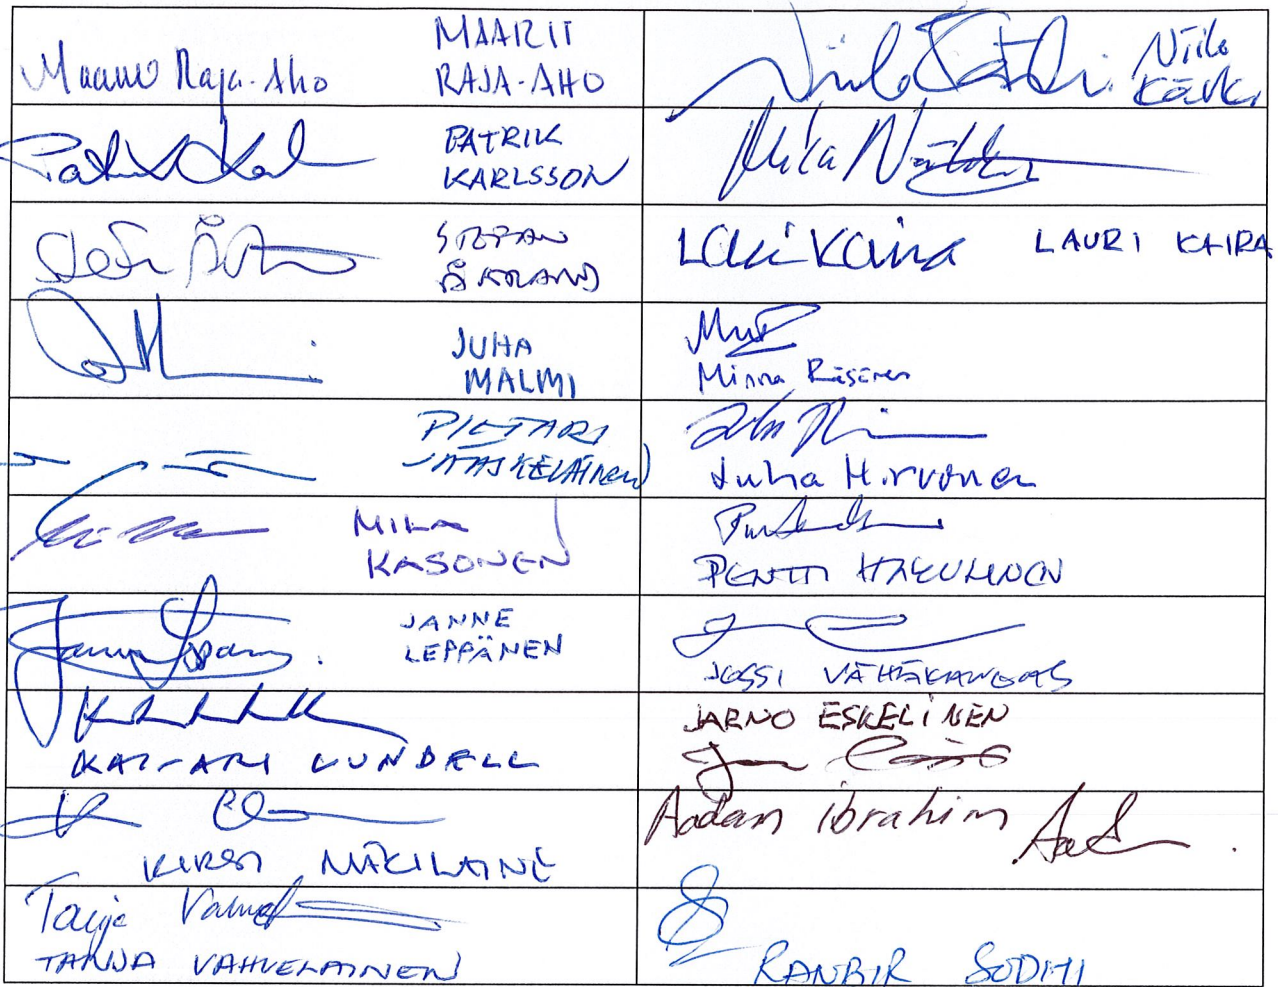 Maarit Raja-Aho
MAARIT
RAJA-AHO
Niilo Kärki
Niilo
Kärki
PATRIK
KARLSSON
Mika
STEFAN
ÅKRAND
Lauri Kaira LAURI KAIRA
JUHA
MALMI
Minna Räsänen
PIETARI
JÄÄSKELÄINEN
Juha Hirvonen
MIKA
KASONEN
PENTTI
JANNE
LEPPÄNEN
JUSSI VÄHÄKANGAS
KAI-ARI LUNDELL
JARNO ESKELINEN
KIRSI
Aadan ibrahim
Tanja
TANJA VAHVELAINEN
RANBIR SODHI